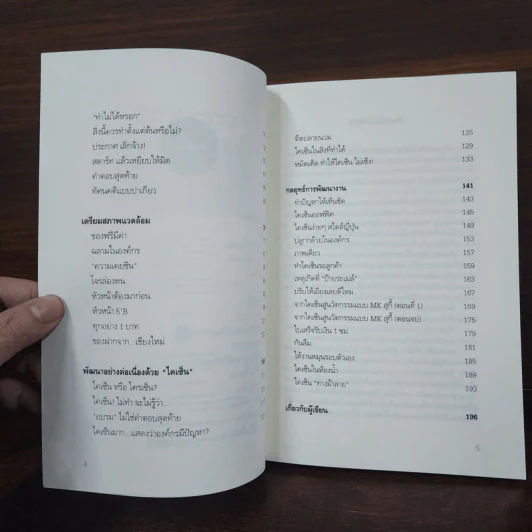 "ทำไม่ได้หรอก"
สิ่งนี้ควรทำตั้งแต่ต้นหรือไม่?
ประกาศ เลิกจ้าง!
สตาร์ท แล้วเหยียบให้มิด
คำตอบสุดท้าย
ทัศนคติแบบปาเกียว
เตรียมสภาพแวดล้อม
ของฟรีมีค่า
ฉลามในองค์กร
"ความเคยชิน"
โจรล่องหน
หัวหน้าต้องมาก่อน
หัวหน้า 5'B
ทุกอย่าง 1 บาท
ของฝากจาก...เชียงใหม่
พัฒนาอย่างต่อเนื่องด้วย "ไคเซ็น"
ไคเซ็น หรือ ใครเซ็น?
ไคเซ็น! ไม่ทำ จะไม่รู้ว่า...
"อบรม" ไม่ใช่คำตอบสุดท้าย
ไคเซ็นมาก... แสดงว่าองค์กรมีปัญหา?
4
ติดปลายนวม 125
ไคเซ็นในสิ่งที่ทำได้ 129
หมัดเด็ด ทำให้ไคเซ็น ไม่เซ็ง! 133
กลยุทธ์การพัฒนางาน 141
ทำปัญหาให้เห็นชัด 143
ไคเซ็นออฟฟิศ 145
ไคเซ็นง่ายๆ สไตล์ญี่ปุ่น 149
ปลูกกล้วยในองค์กร 153
ภาพเดียว 157
ทำไคเซ็นรอลูกค้า
เหตุเกิดที่ "ป้ายรถเมล์" 163
ปรับให้เฉียบเลยดีไหม 167
จากไคเซ็นสู่นวัตกรรมแบบ MK สุกี้ (ตอนที่ 1) 169
จากไคเซ็นสู่นวัตกรรมแบบ MK สุกี้ (ตอนจบ) 175
ใบเสร็จรับเงิน 1 ซม 179
กันลืม 181
ให้งานหมุนรอบตัวเอง 185
ไคเซ็นในห้องน้ำ 189
ไคเซ็น "ทางม้าลาย" 193
เกี่ยวกับผู้เขียน 196
5